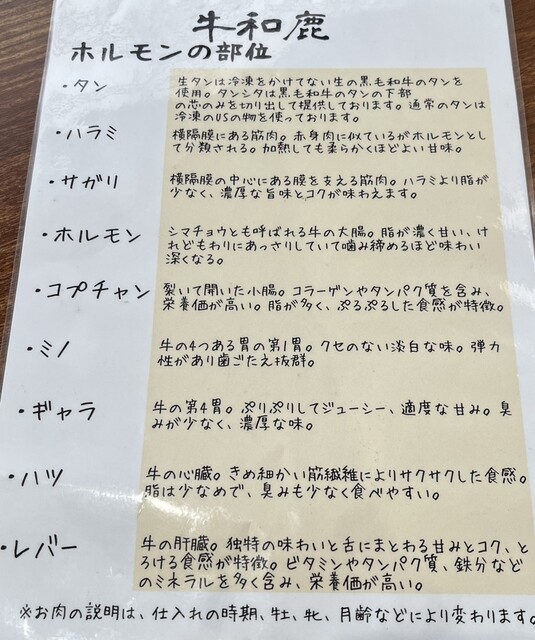 牛和鹿
ホルモンの部位
・タン
生タンは冷凍をかけてない生の黒毛和牛のタンを
使用。タンシタは黒毛和牛のタンの下部
の芯のみを切り出して提供しております。通常のタンは
冷凍のUSの物を使っております。
・ハラミ
横隔膜にある筋肉。赤身肉に似ているがホルモンとし
て分類される。加熱しても柔らかくほどよい甘味。
・サガリ
横隔膜の中心にある膜を支える筋肉。ハラミより脂が
少なく、濃厚な旨味とコクが味わえます。
・ホルモン
シマチョウとも呼ばれる牛の大腸。脂が濃く甘い、け
れどもわりにあっさりしていて噛み締めるほど味わい
深くなる。
・コプチャン
裂いて開いた小腸。コラーゲンやタンパク質を含み、
栄養価が高い。脂が多く、ぷるぷるした食感が特徴。
・ミノ
牛の4つある胃の第1胃。クセのない淡白な味。弾力
性があり歯ごたえ抜群。
・ギャラ
牛の第4胃。ぷりぷりしてジューシー、適度な甘み。臭
みが少なく、濃厚な味。
・ハツ
牛の心臓。きめ細かい筋繊維によりサクサクした食感。
脂は少なめで、臭みも少なく食べやすい。
・レバー
牛の肝臓。独特の味わいと舌にまとわる甘みとコク、と
ろける食感が特徴。ビタミンやタンパク質、鉄分など
のミネラルを多く含み、栄養価が高い。
※お肉の説明は、仕入れの時期、牡、牝、月齢などにより変わります。